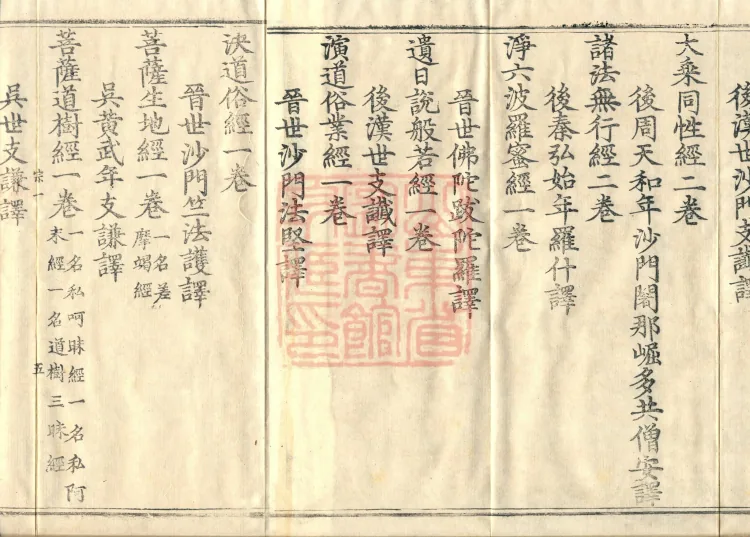 後漢世沙門支讖譯
大乘同性經二卷
後周天和年沙門闍那崛多共僧安譯
諸法無行經二卷
後秦弘始年羅什譯
淨六波羅蜜經一卷
晉世佛陀跋陀羅譯
遺日說般若經一卷
後漢世支讖譯
演道俗業經一卷
晉世沙門法堅譯
決道俗經一卷
晉世沙門竺法護譯
菩薩生地經一卷一名差摩竭經
吳黃武年支謙譯
菩薩道樹經一卷一名私呵昧經一名私阿末經一名道樹三昧經
宗一 五
吳世支謙譯